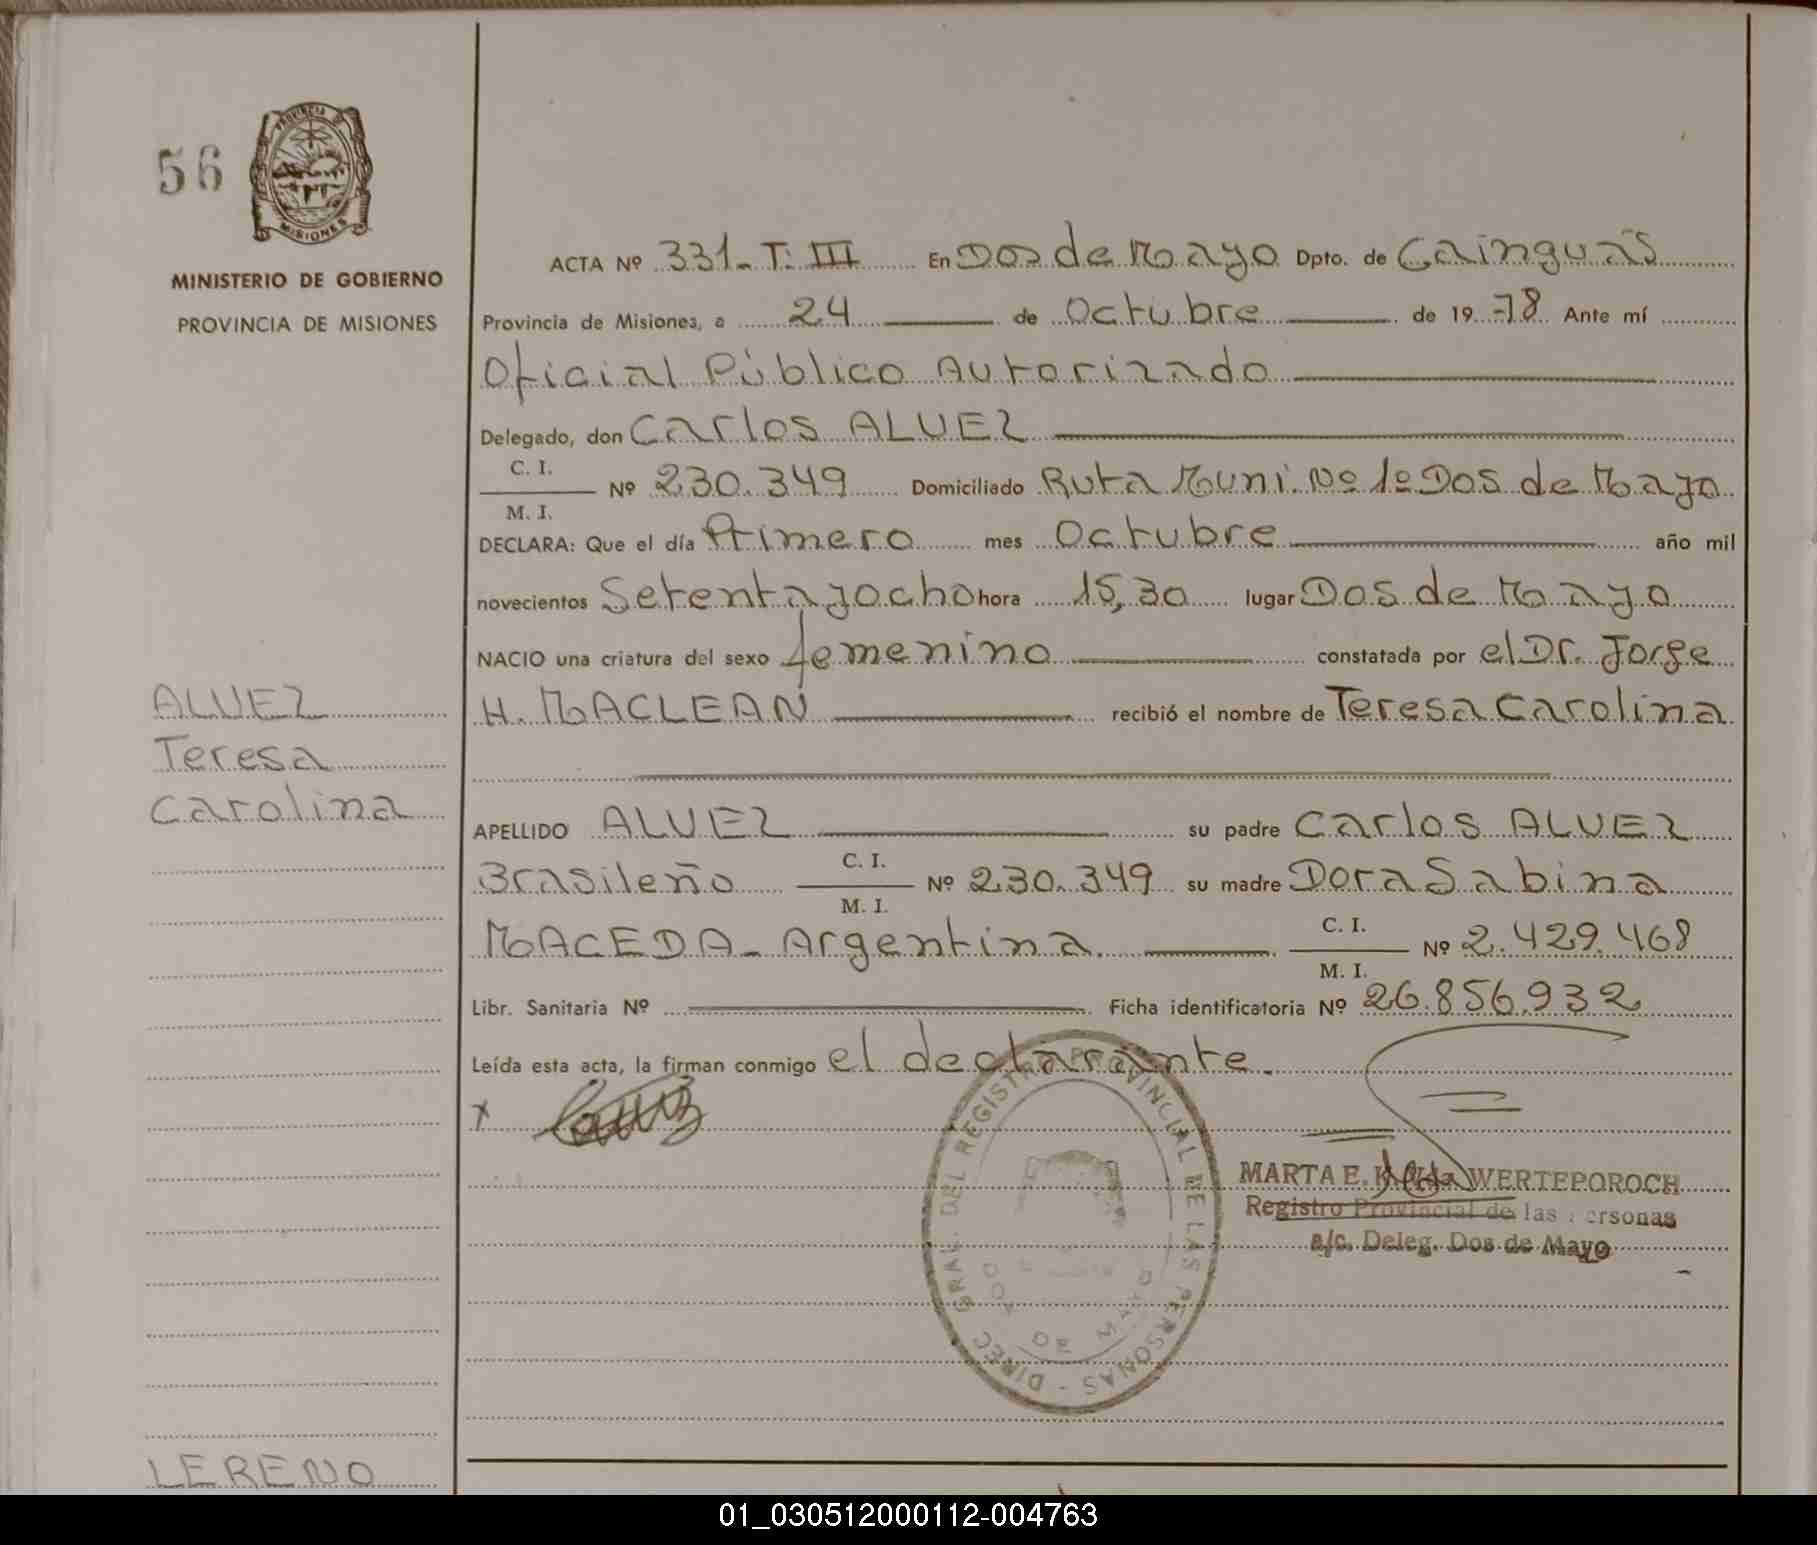 56
PROVINCIA DE
MISIONES
MINISTERIO DE GOBIERNO
PROVINCIA DE MISIONES
ACTA Nº 331-T: III En Dos de Mayo Dpto. de Cainguás
Provincia de Misiones, a 24 de Octubre de 19 78 Ante mí
Oficial Público Autorizado
Delegado, don Carlos ALVEZ
C. I.
Nº 230.349 Domiciliado Ruta Muni. Nº 1º Dos de Mayo
M. I.
DECLARA: Que el día Primero mes Octubre año mil
novecientos Setentayocho hora 15,30 lugar Dos de Mayo
NACIO una criatura del sexo femenino constatada por el Dr. Jorge
H. MACLEAN recibió el nombre de Teresa Carolina
ALVEZ
Teresa
Carolina
APELLIDO ALVEZ su padre Carlos ALVEZ
Brasileño C. I. Nº 230.349 su madre Dora Sabina
M. I.
MACEDA- Argentina. C. I. Nº 2.429.468
M. I.
Libr. Sanitaria Nº Ficha identificatoria Nº 26.856.932
Leída esta acta, la firman conmigo el declarante.
x
DIREC. GRAL. DEL REGISTRO PROVINCIAL DE LAS PERSONAS -
DOS DE MAYO
MARTA E. WERTEPOROCH
Registro Provincial de las ersonas
a/c. Deleg. Dos de Mayo
LERENO
01_030512000112-004763